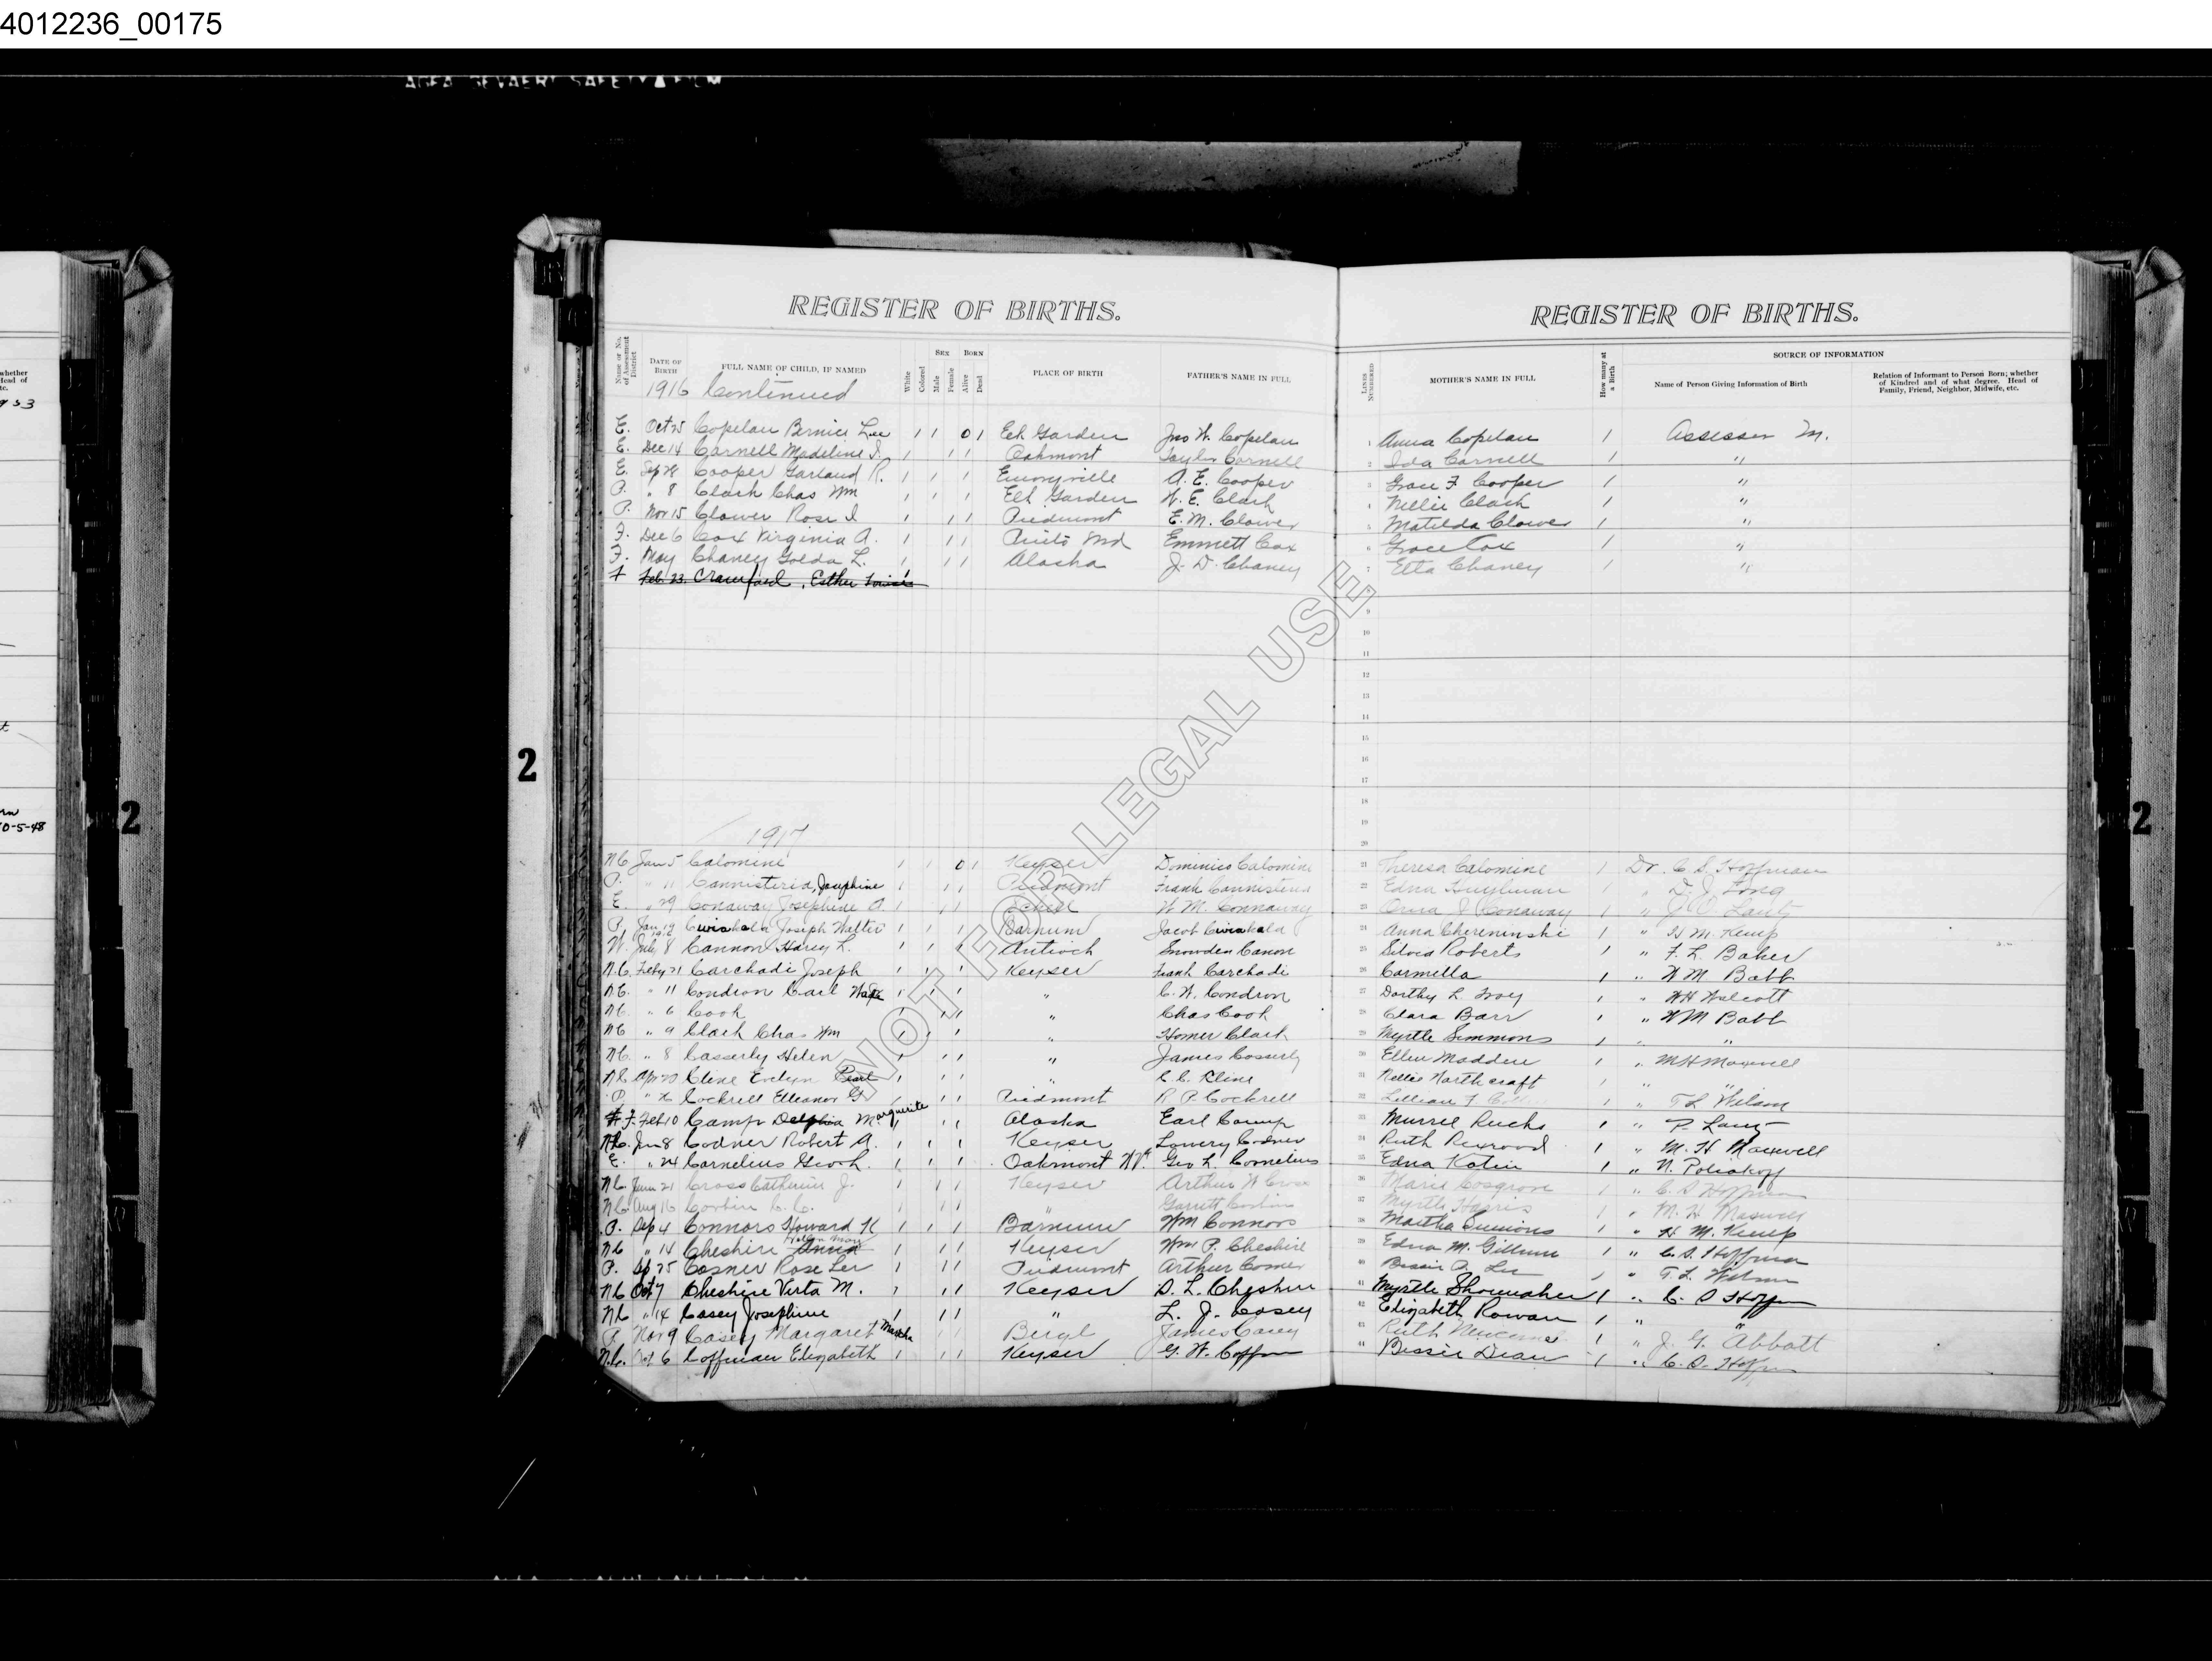 4012236_00175
REGISTER OF BIRTHS.
REGISTER OF BIRTHS.
Name or No. of Assessment District
DATE OF BIRTH
FULL NAME OF CHILD, IF NAMED
White
Colored
SEX
Male
Female
BORN
Alive
Dead
PLACE OF BIRTH
FATHER'S NAME IN FULL
LINES NUMBERED
MOTHER'S NAME IN FULL
How many at a Birth
SOURCE OF INFORMATION
Name of Person Giving Information of Birth
Relation of Informant to Person Born; whether of Kindred and of what degree. Head of Family, Friend, Neighbor, Midwife, etc.
1916 Continued
E. Oct 25 Copelan Bernice Lee 1 1 0 1 Elk Garden Jno W. Copelan 1 Anna Copelan 1 Assessor M.
E. Dec 14 Carnell Madeline 1 1 1 Oakmont Carnell 2 Ida Carnell 1 "
E. Sep 28 Cooper Garland R. 1 1 1 Emoryville A. E. Cooper 3 Grace F Cooper 1 "
P. " 8 Clark Chas Wm 1 1 1 Elk Garden W. E. Clark 4 Nellie Clark 1 "
P. Nov 15 Clower Rose I 1 1 1 Piedmont E. M. Clower 5 Matilda Clower 1 "
F. Dec 6 Cox Virginia A. 1 1 1 Pinto Md Emmett Cox 6 Grace Cox 1 "
F. May Chaney Golda L. 1 1 1 Alaska J. D. Chaney 7 Etta Chaney 1 "
F Feb. 23. Crawford, Esther Louise
8
9
10
11
12
13
14
15
16
17
18
19
20
1917
N.C. Jan 5 Calomine 1 1 0 1 Keyser Dominico Calomine 21 Theresa Calomine 1 Dr. C. S. Hoffman
P. " 11 Cannisteria, Josephine 1 1 1 Piedmont Frank Cannisteria 22 Edna 1 "
E. " 29 Conaway Josephine A. 1 1 1 Schell W. M. Connaway 23 Conaway 1 " Lantz
P. Jan 19 1916 Cwiakala Joseph Walter 1 1 1 Barnum Jacob Cwiakala 24 Anna Chereninski 1 " H. M. Kemp
W. July 8 Cannon Harry L. 1 1 1 Antioch Snowden Canon 25 Silvia Roberts 1 " F. L. Baker
N.C. Feby 21 Carchadi Joseph 1 1 1 Keyser Frank Carchadi 26 Carmella 1 " W M Babb
N.C. " 11 Condron Carl 1 1 1 " C. W. Condron 27 Dorthy L. Troy 1 " W H Wolcott
N.C. " 6 Cook 1 1 1 " Chas Cook 28 Clara Barr 1 " W M Babb
N.C. " 9 Clark Chas Wm 1 1 1 " Homer Clark 29 Myrtle Simmons 1 " "
N.C. " 8 Casserly Helen 1 1 1 " James Casserly 30 Ellen Madden 1 " M H Maxwell
N.C. Apr 20 Cline Evelyn Pearl 1 1 1 " C. C. Kline 31 Nellie Northcraft 1 " "
P. " 26 Cockrell Elleanor G 1 1 1 Piedmont R. P. Cockrell 32 Lillian 1 " T L Wilson
F. Feb 10 Camp Delphia M. Marguerite 1 1 1 Alaska Earl Camp 33 Murrel 1 "
N.C. Jun 8 Codner Robert A. 1 1 1 Keyser Lowery Codner 34 Ruth Rexrood 1 " M. H Maxwell
E. " 24 Cornelius Geo H. 1 1 1 Oakmont W Va. Geo L. Cornelius 35 Edna 1 " N. Poliakoff
N.C. Jun 21 Cross Catherine J. 1 1 1 Keyser Arthur W Cross 36 Marie Cosgrove 1 " C. S Hoffman
N.C. Aug 16 Corbin C. C. " Garrett Corbin 37 Myrtle Harris 1 " M. H Maxwell
P. Sep 4 Connors Howard K 1 1 1 Barnum Wm Connors 38 Martha 1 " H M. Kemp
N.C " 14 Cheshire Anna 1 1 1 Keyser Wm P. Cheshire 39 Edna M. Gillum 1 " C. S. Hoffman
P. Sp 25 Cosner Rose Lee 1 1 1 Piedmont Arthur 40 Bessie A. Lee 1 " T. L. Wilson
N.C Oct 7 Cheshire Virta M. 1 1 1 Keyser S. L. Cheshire 41 Myrtle Shoemaker 1 " C. S Hoffman
N.C " 14 Casey Josephine 1 1 1 " L. J. Casey 42 Elizabeth Rowan 1 " "
P Nov 9 Casey Margaret Martha 1 1 Beryl James Casey 43 Ruth 1 " J. G. Abbott
N.C. Oct 6 Coffman Elizabeth 1 1 1 Keyser G. W. Coffman 44 Bessie Dean 1 " C. S. Hoffman
NOT FOR LEGAL USE
2
2
2
whether
Head of
tc.
10-5-48